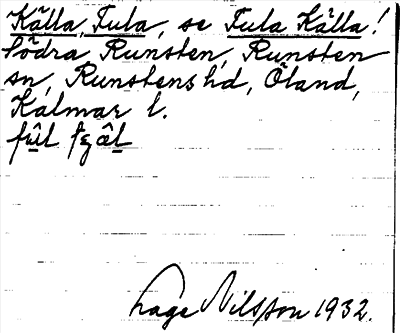 Källa, Fula, se Fula Källa!
Södra Runsten, Runsten
sn, Runstens hd, Öland,
Kalmar l.
fûl
Lage Nilsson 1932.